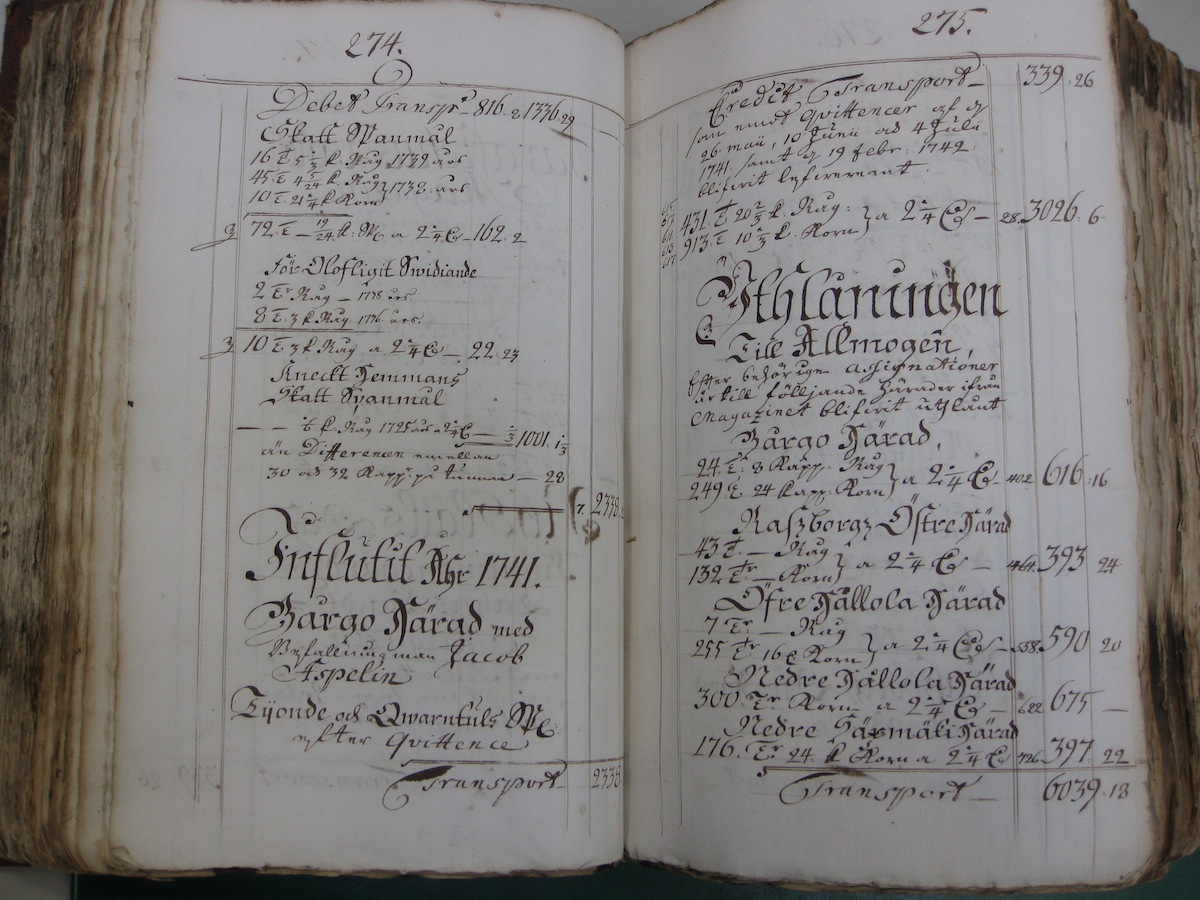 274.
Debet Transpt 816. 2 1336 29
Skatt Spanmål
16 T 5 1/3 k. Råg 1739 års
45 T 4 5/24 k. Råg 1738 års
10 T 21 1/4 k Korn
3 72 T — 19/24 k: Sp a 2 1/4 — 162. 2
för Olofligit Swidiande
2 Tr Råg — 1738 års
8 T. 3 k Råg 1736 års.
3 10 T 3 k Råg a 2 1/4 — 22. 23
Knecht Hemmans
Skatt Spanmål
— — k. Råg 1725 års a 2 1/4 — 1/3 1001. 1 1/3
än Differencen emellan
30 och 32 Kapp. på tunnan — 28
7. 2338
Influtit Åhr 1741.
Bårgo Härad med
Befallningsman Jacob
Aspelin
Tijonde och Qwarntuls Sp
efter Qvittence
Transport 2338
275.
Credit Transport — 339 . 26
som emot Qvittencer af d
26 maii, 10 Junii och 4 Julii
1741 samt d 19 febr. 1742.
blifvit lefvereret.
431. T 20 2/3 k. Råg.
913. T 10 1/3 k. Korn a 2 1/4 — 28. 3026. 6
Uthlåningen
Till Allmogen,
Efter behörige assignationer
är till följande Härader ifrån
Magazinet blifvit uthlånt
Bårgo Härad,
24. T. 8 Kapp. Råg
249 T. 24 kapp. Korn a 2 1/4 — 402 616 . 16
Raszborgz Östre Härad
43 T. — Råg
132 Tr — Korn a 2 1/4 — 464. 393 24
Öfre Hållola Härad
7 Tr — Råg
255 Tr 16 k Korn a 2 1/4 — 538. 590 20
Nedre Hållola Härad
300 Tr Korn a 2 1/4 — 622 675 —
Nedre Härmäki Härad
176. Tr 24. k Korn a 2 1/4 726. 397 22
Transport — 6039 . 18